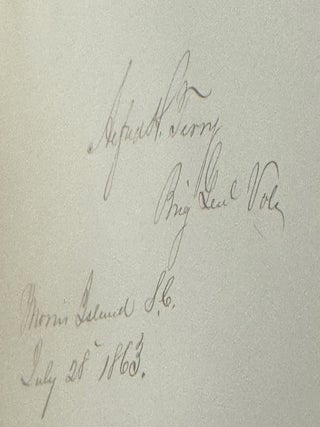 Alfred H. Terry
Brig Genl Vols
Morris Island S.C.
July 28 1863.